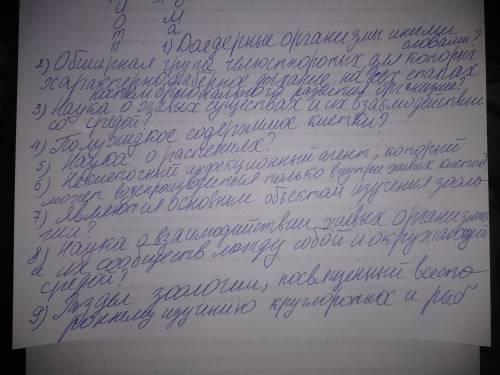 О М
т а
1) Доядерные организмы иными словами?
2) Обширная група челюстноротых, для которых
характерно жаберное дыхание на всех етапах
постэмбрионального развития организма?
3) Наука о живых существах и их взаимодействии
со средой?
4) Полужидкое содержимое клетки?
5) Наука о растениях?
6) Неклеточный инфекционный агент, который
может воспроизводиться только внутри живых клеток
7) Является основным объектом изучения зооло-
гии?
8) Наука о взаимодействии живых организмов
и их сообществ между собой и окружающей
средой?
9) Раздел зоологии, посвященный всесто-
роннему изучению круглоротых и рыб